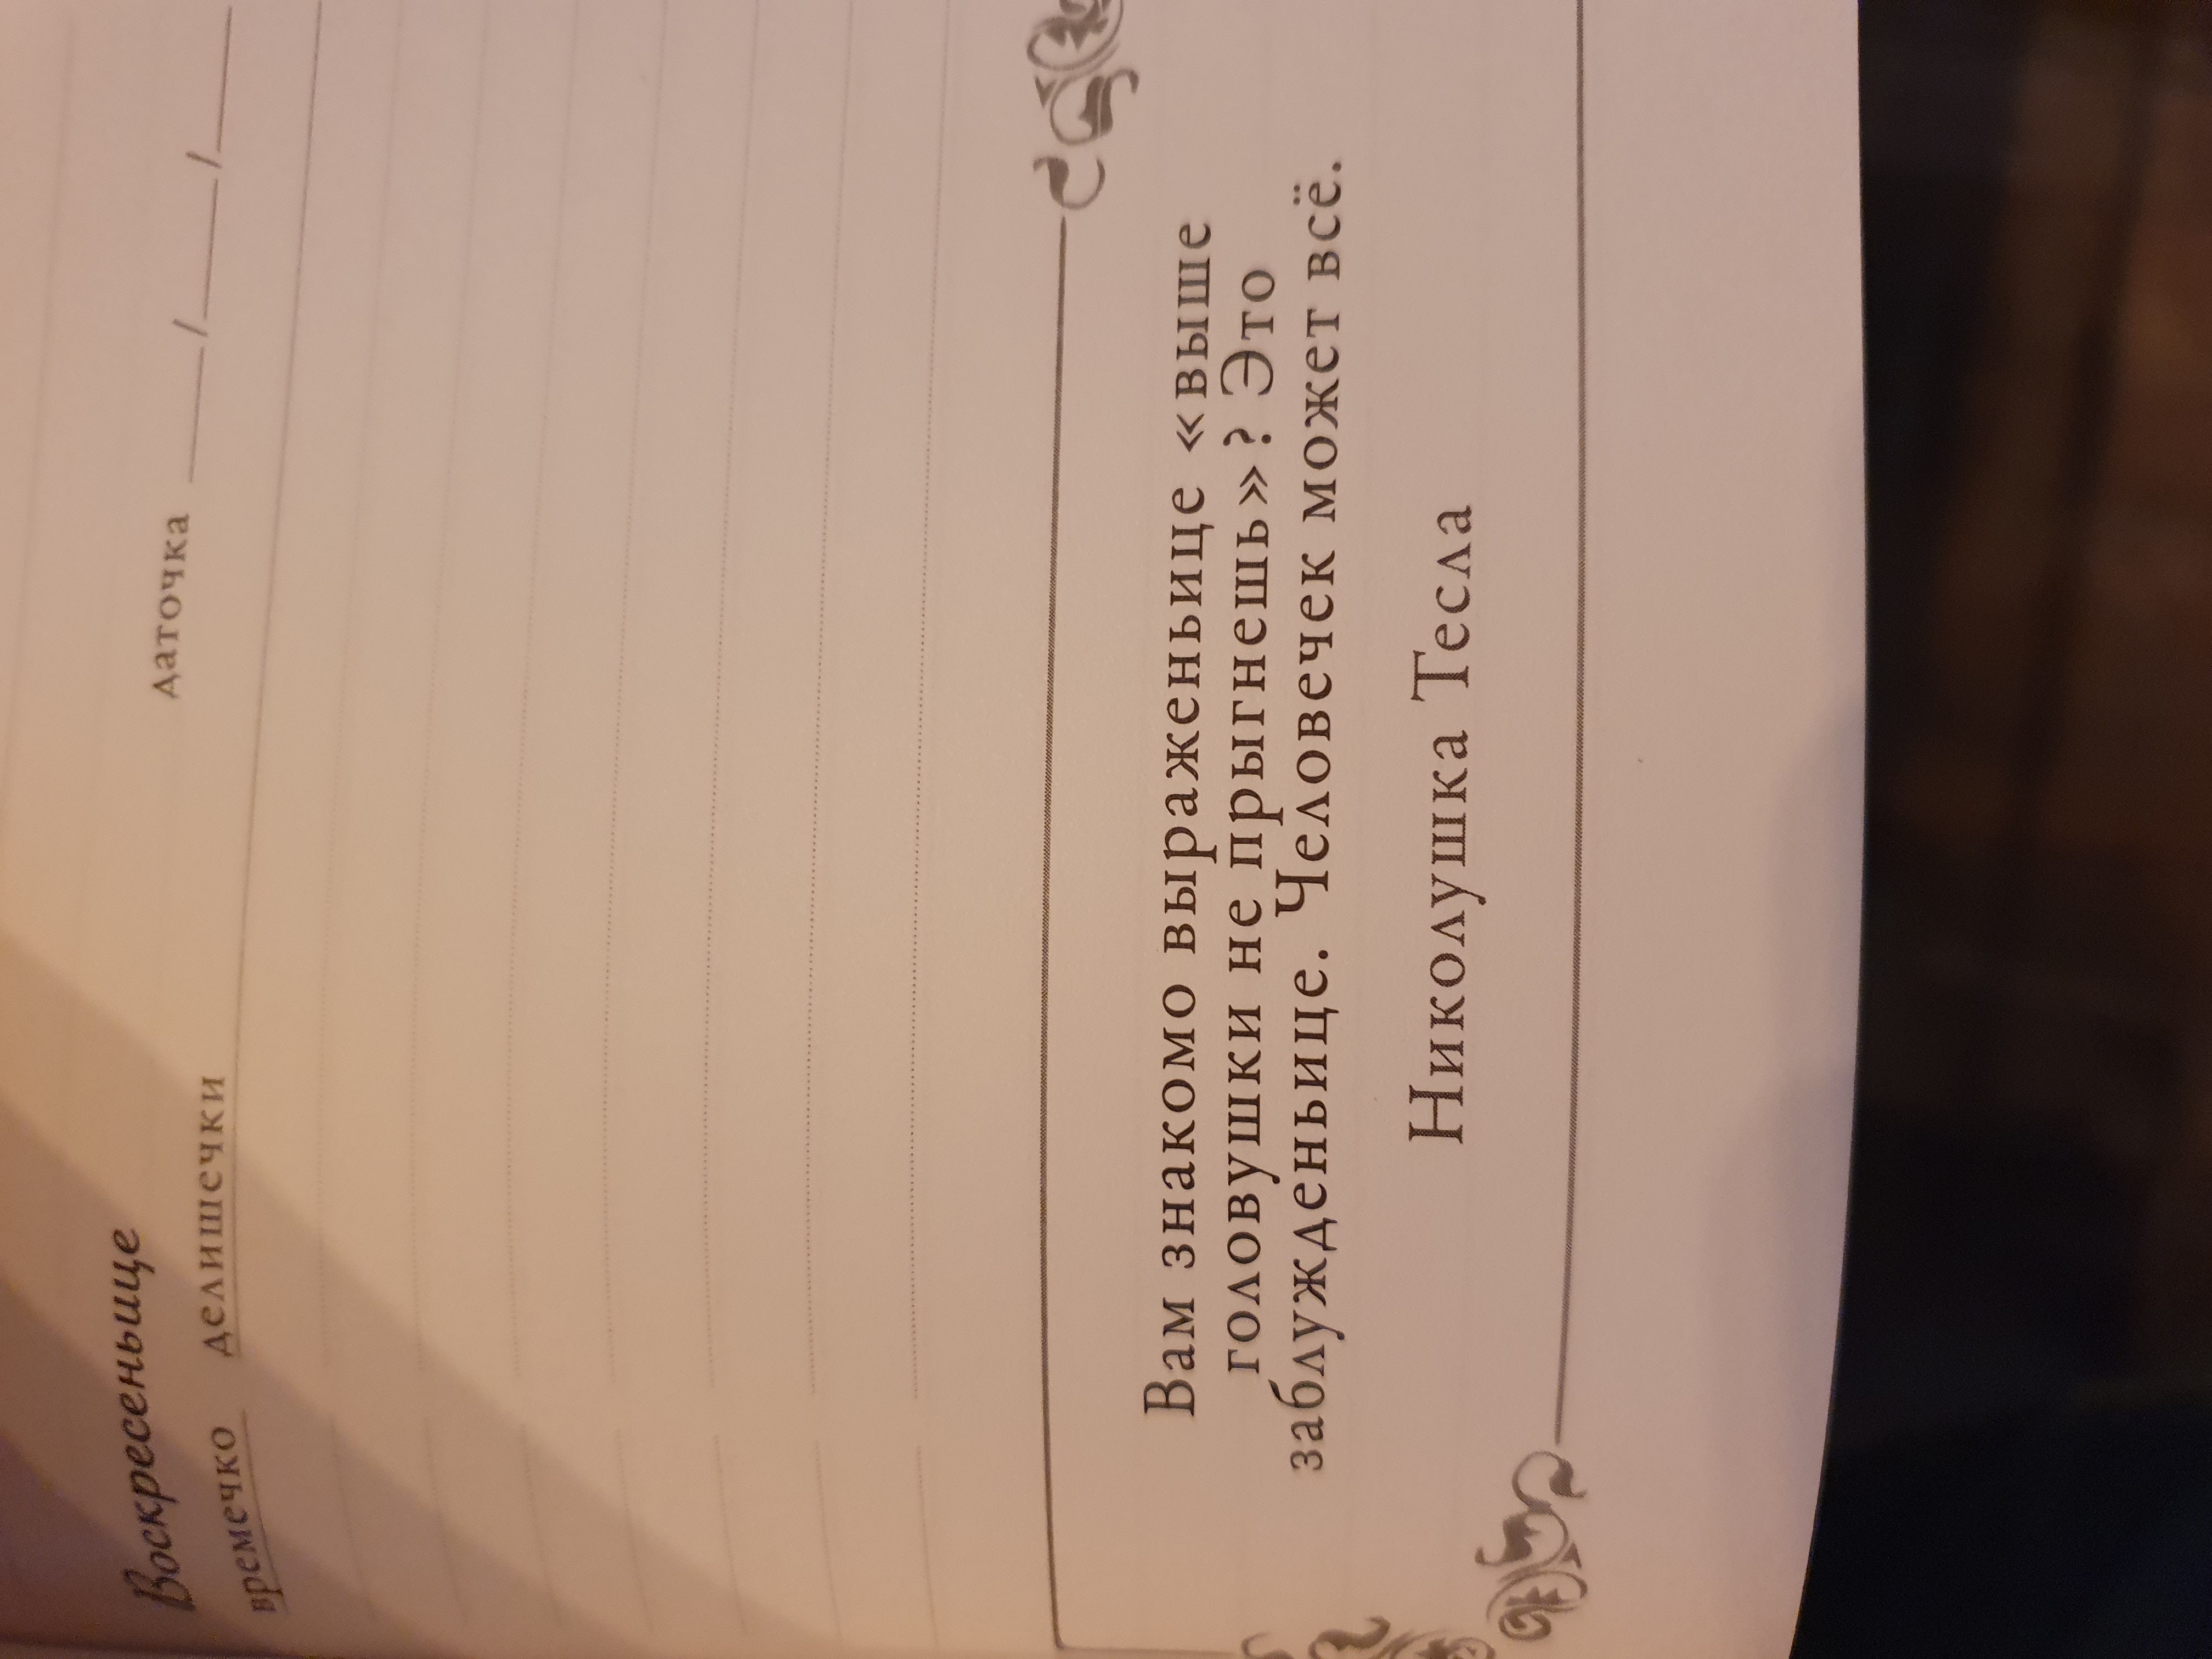 Воскресеньице
даточка ___/___/___
времечко делишечки
Вам знакомо выраженьице «выше
головушки не прыгнешь»? Это
заблужденьице. Человечек может всё.
Николушка Тесла